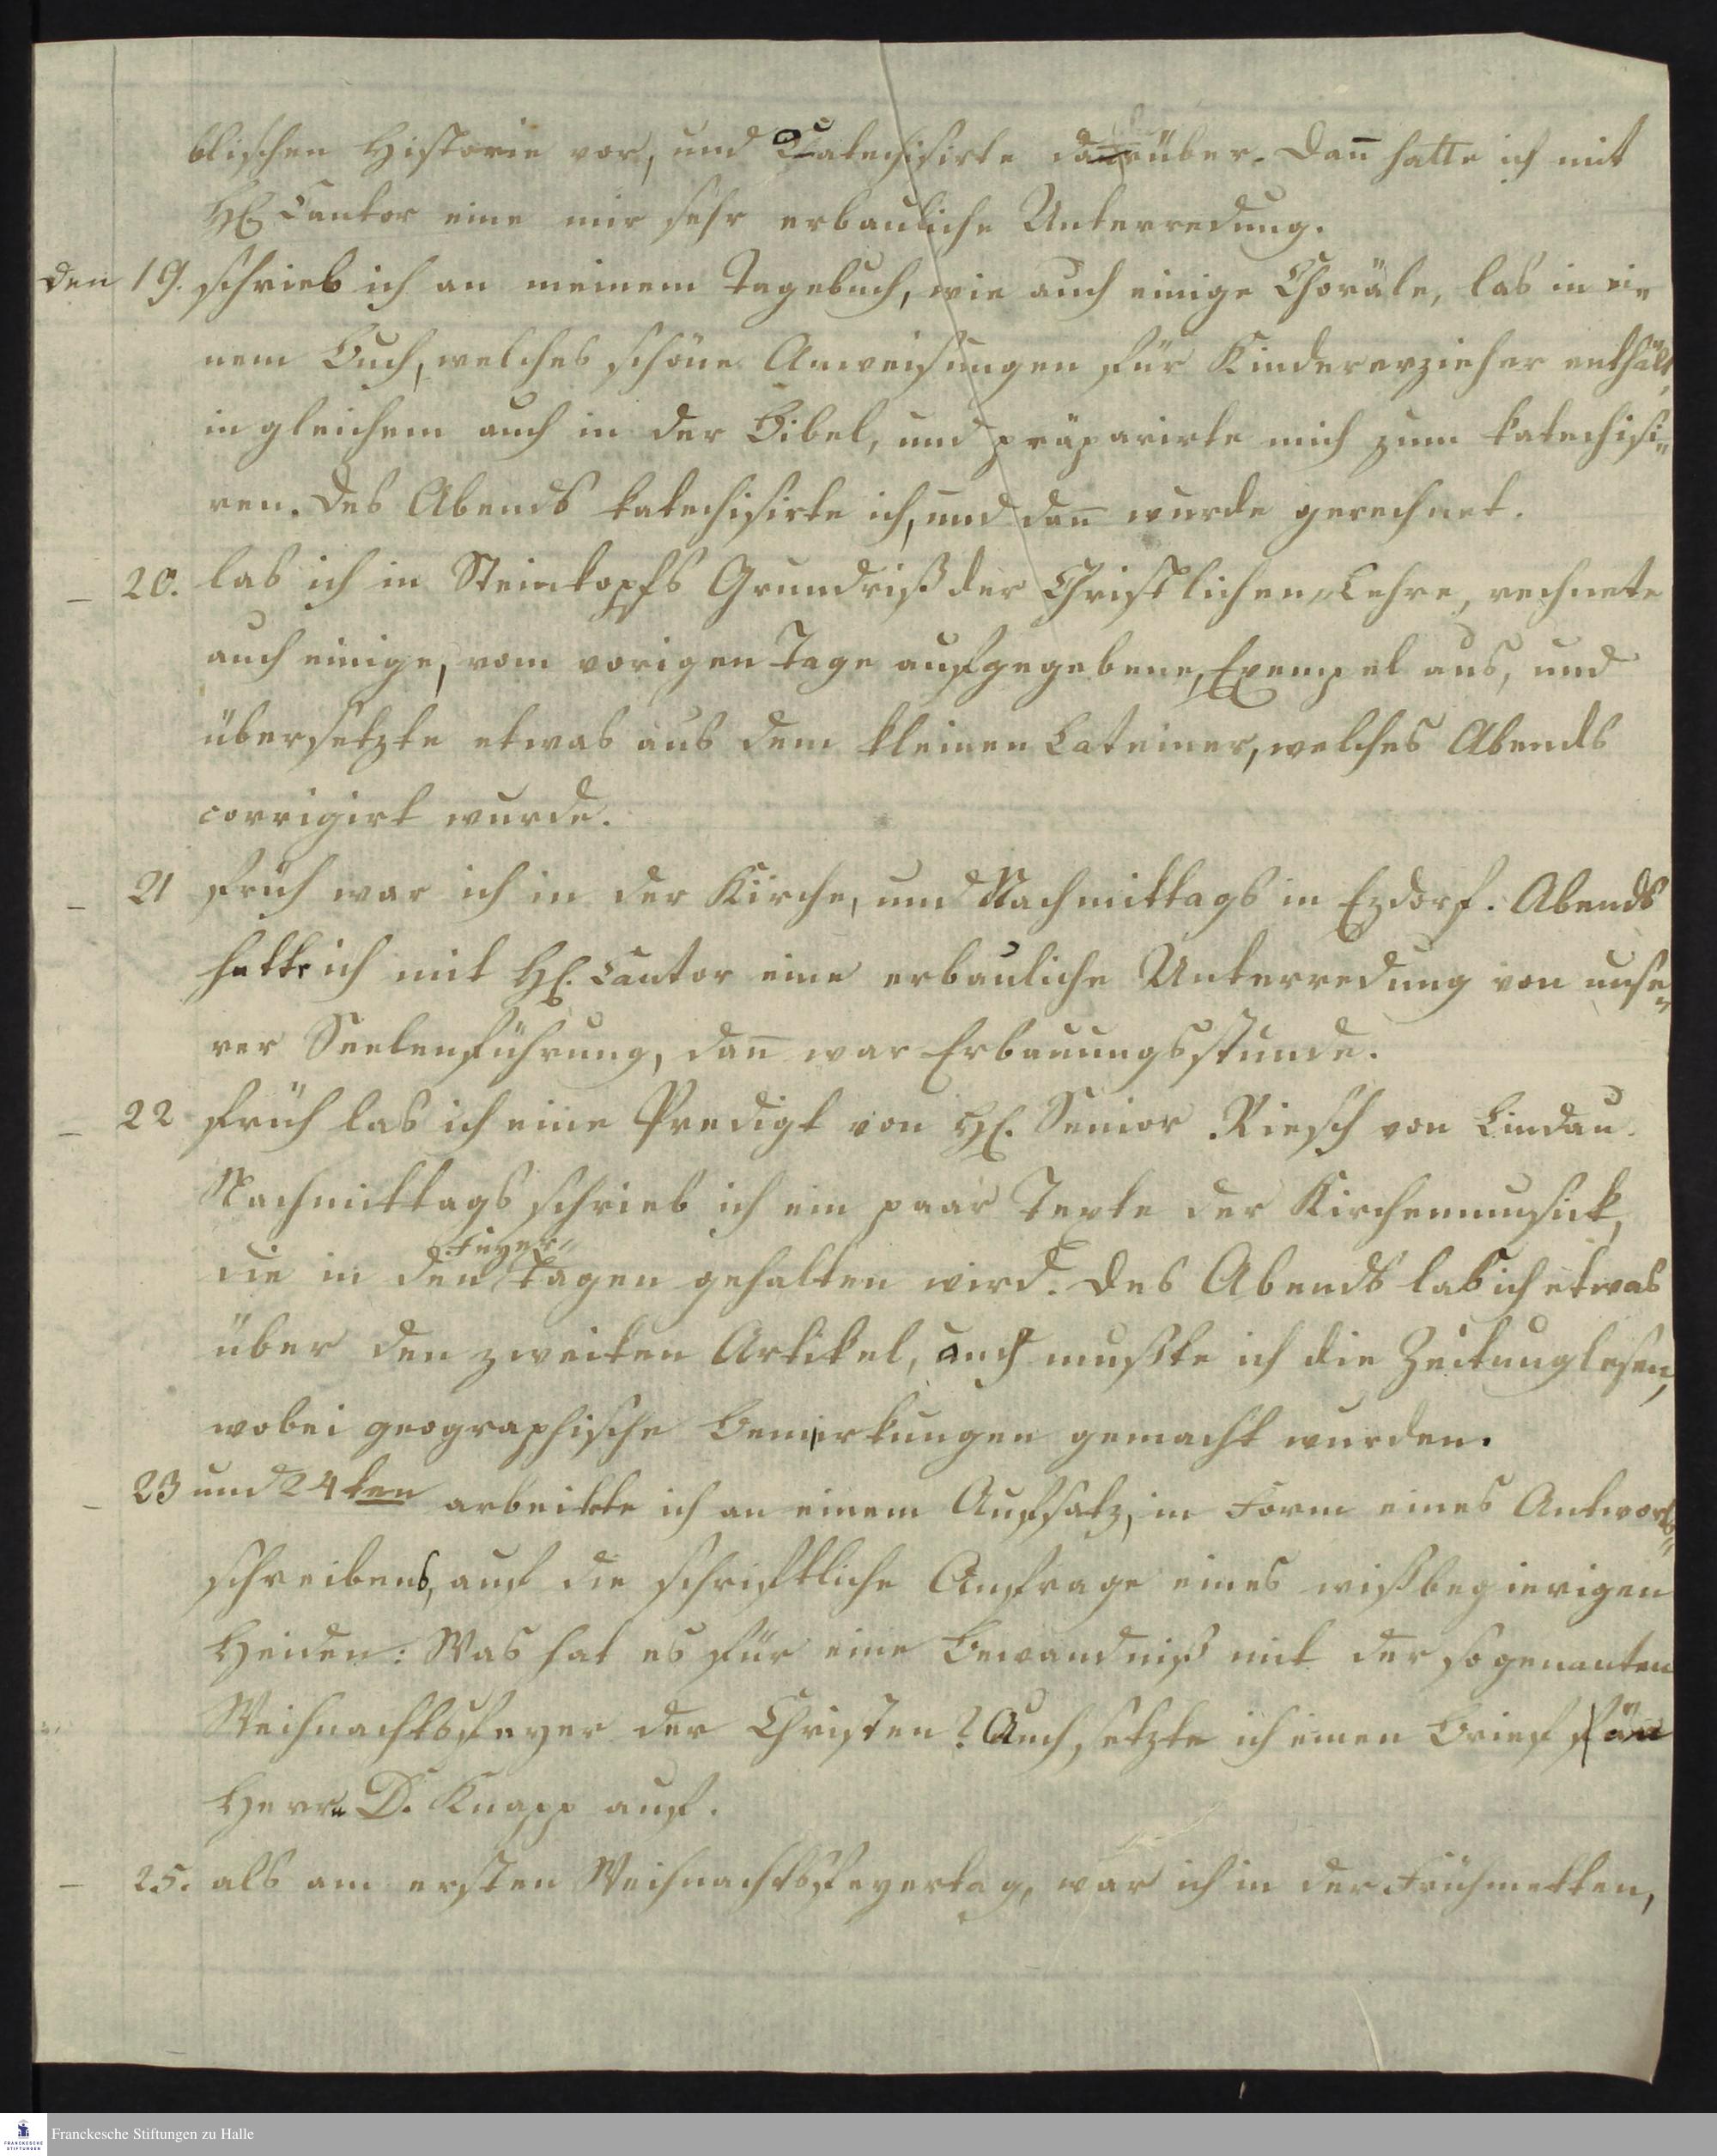 blischen Historie vor, und Catechisirte darüber. Dan̄ hatte ich mit
H. Cantor eine mir sehr erbauliche Unterredung.
den 19. schrieb ich an meinem Tagebuch, wie auch einige Choräle, las in ei„
nem Buch, welches schöne Anweisungen für Kindererzieher enthält,
ingleichem auch in der Bibel, und präparirte mich zum katechisi„
ren. Des Abends katechisirte ich, und dan̄ wurde gerechnet.
– 20. las ich in Steinkopfs Grundriß der Christlichen Lehre, rechnete
auch einige, vom vorigen Tage aufgegebene, Exempel aus, und
übersetzte etwas aus dem kleinen Lateiner, welches Abends
corrigirt wurde.
– 21 früh war ich in der Kirche, und Nachmittags in Ezdorf. Abends
hatte ich mit H. Cantor eine erbauliche Unterredung von unse„
rer Seelenführung, dan̄ war Erbauungsstunde.
– 22 früh las ich eine Predigt von H. Senior Riesch von Lindau.
Nachmittags schrieb ich ein paar Texte der Kirchenmusick,
die in den Feyer„tagen gehalten wird. Des Abends las ich etwas
über den zweiten Artikel, auch mußte ich die Zeitung lesen,
wobei geographische Bemerkungen gemacht wurden.
– 23 und 24ten arbeitete ich an einem Aufsatz, in Form eines Antworts„
schreibens, auf die schriftliche Anfrage eines wißbegierigen
Heiden: Was hat es für eine Bewandniß mit der sogenanten
Weihnachtsfeyer der Christen? Auch setzte ich einen Brief an
Herrn D. Knapp auf.
– 25. als am ersten Weihnachtsfeyertag, war ich in der Frühmetten,
Franckesche Stiftungen zu Halle
FRANCKESCHE
STIFTUNGEN